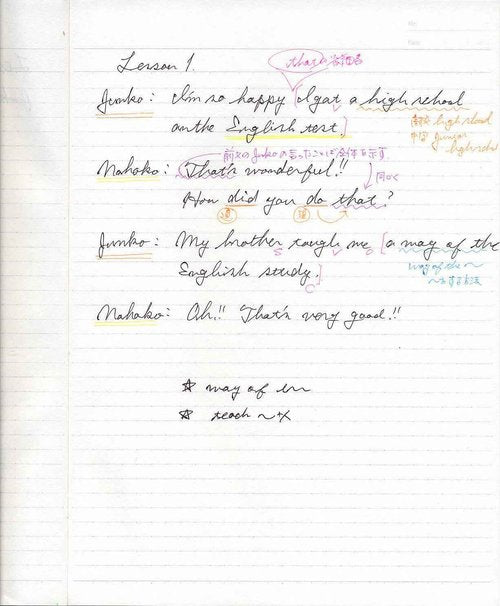 thatの省略
Lesson 1.
Junko: I'm so happy [I got a high school
on the English test.]
高校 high school
中学 junior
high school
前文のJunkoの言ったことば全体を示す
Nahoko: That's wonderful!!
同じく
How did you do that?
過 過
Junko: My brother taugh me [a way of the
S V O
English study.]
C
way of the ~
~する方法
Nahoko: Oh!! That's very good!!
☆ way of
☆ teach ~+X